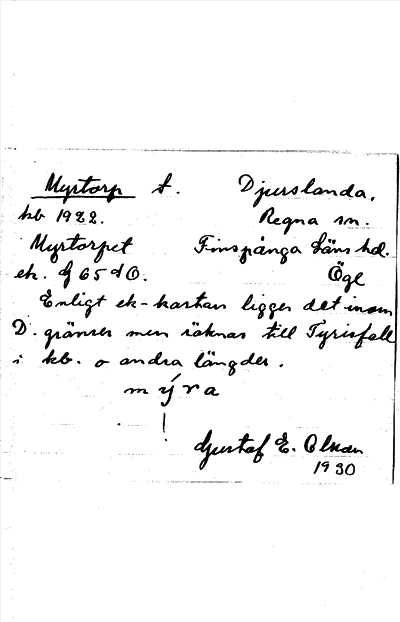 Myrtorp t. Djurslanda,
kb 1922. Regna sn.
Myrtorpet Finspånga läns hd.
ek. f 65 d O. Ögl
Enligt ek-kartan ligger det inom
D. gränser men räknas till Tyrisfall
i kb. o andra längder.
mýra
Gustaf E. Olson
1930